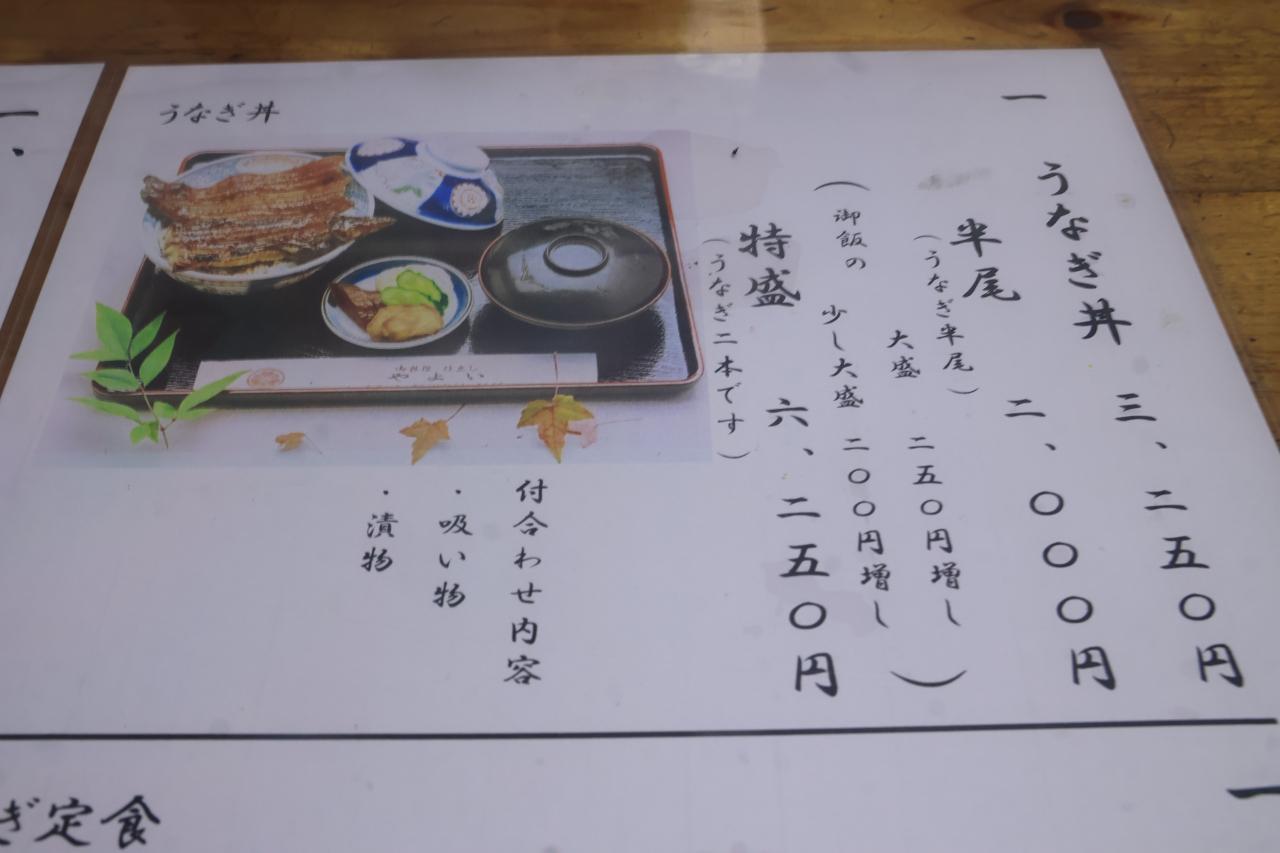 一 うなぎ丼 三、二五〇円
半尾 二、〇〇〇円
(うなぎ半尾)
(御飯の 大盛 二五〇円増し
少し大盛 二〇〇円増し)
特盛 六、二五〇円
(うなぎ二本です)
うなぎ丼
やよい
付合わせ内容
・吸い物
・漬物
一、
一
ぎ定食